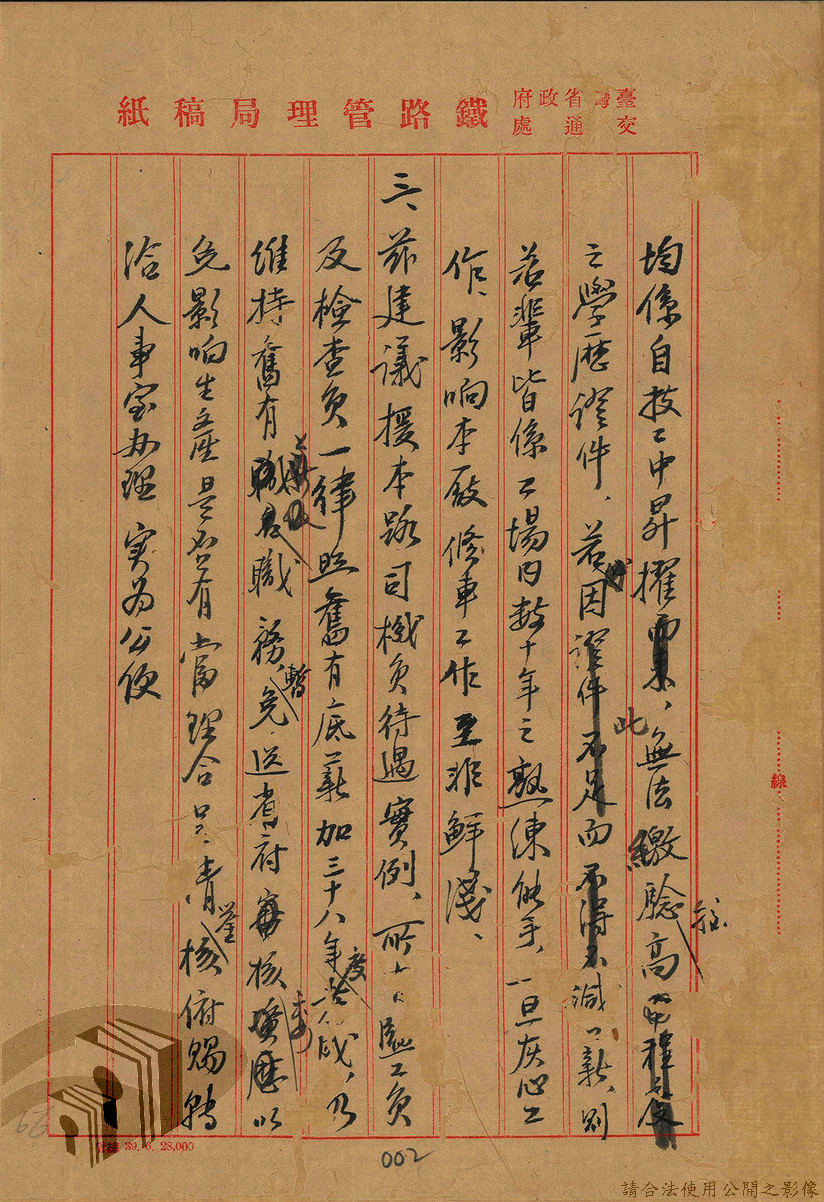 臺灣省政府交通處
鐵路管理局稿紙
均係自技工中昇擢而來，無法繳驗高
之學歷證件，若因此而減薪，則
若輩皆係工場內數十年之熟練能手，一旦灰心工
作、影响本廠修車工作至非鮮淺、
三、茲建議援本路司機員待遇實例、所有監工員
及檢查員一律照舊有底薪加三十八年度成，乃
維持舊有職務，暫免送省府審核以
免影响生產是否有當理合呈請鑒核俯賜轉
洽人事室办理实為公便
線
39. 6. 28,000
66
002
請合法使用公開之影像